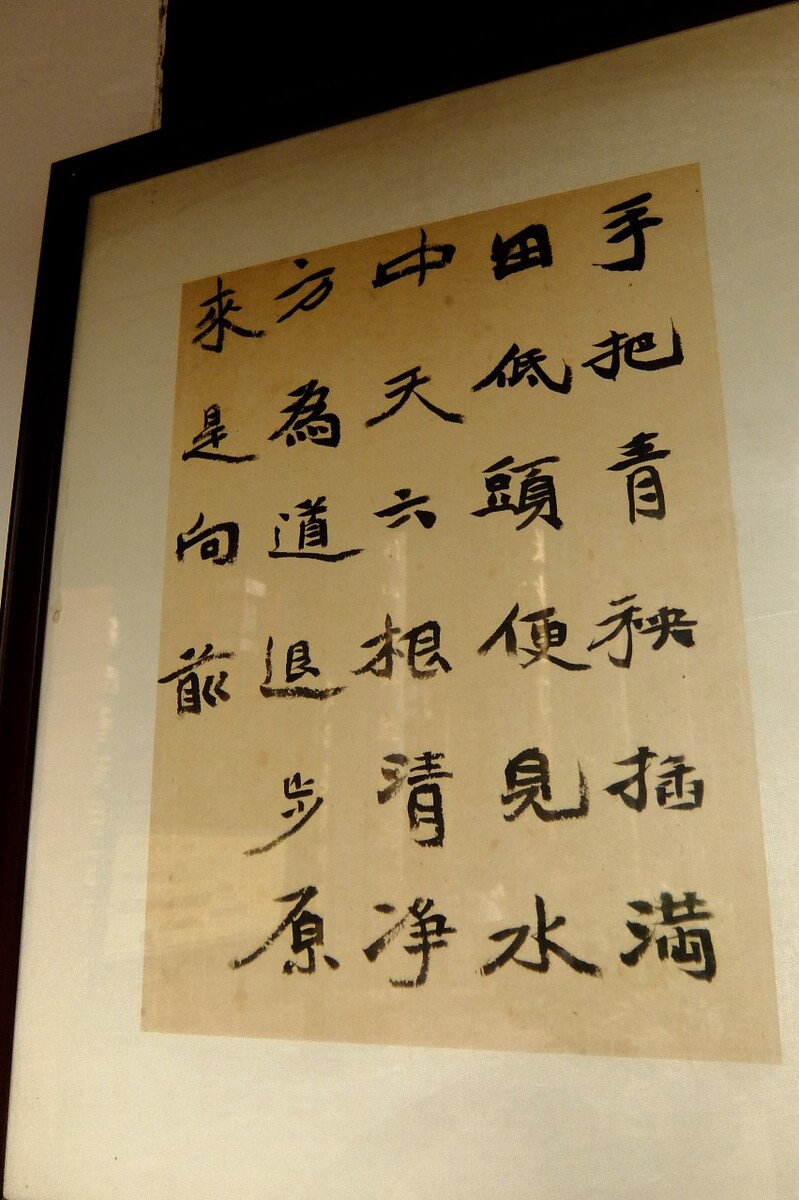 手把青秧插滿
田低頭便見水
中天六根清净
方為道退步原
來是向前